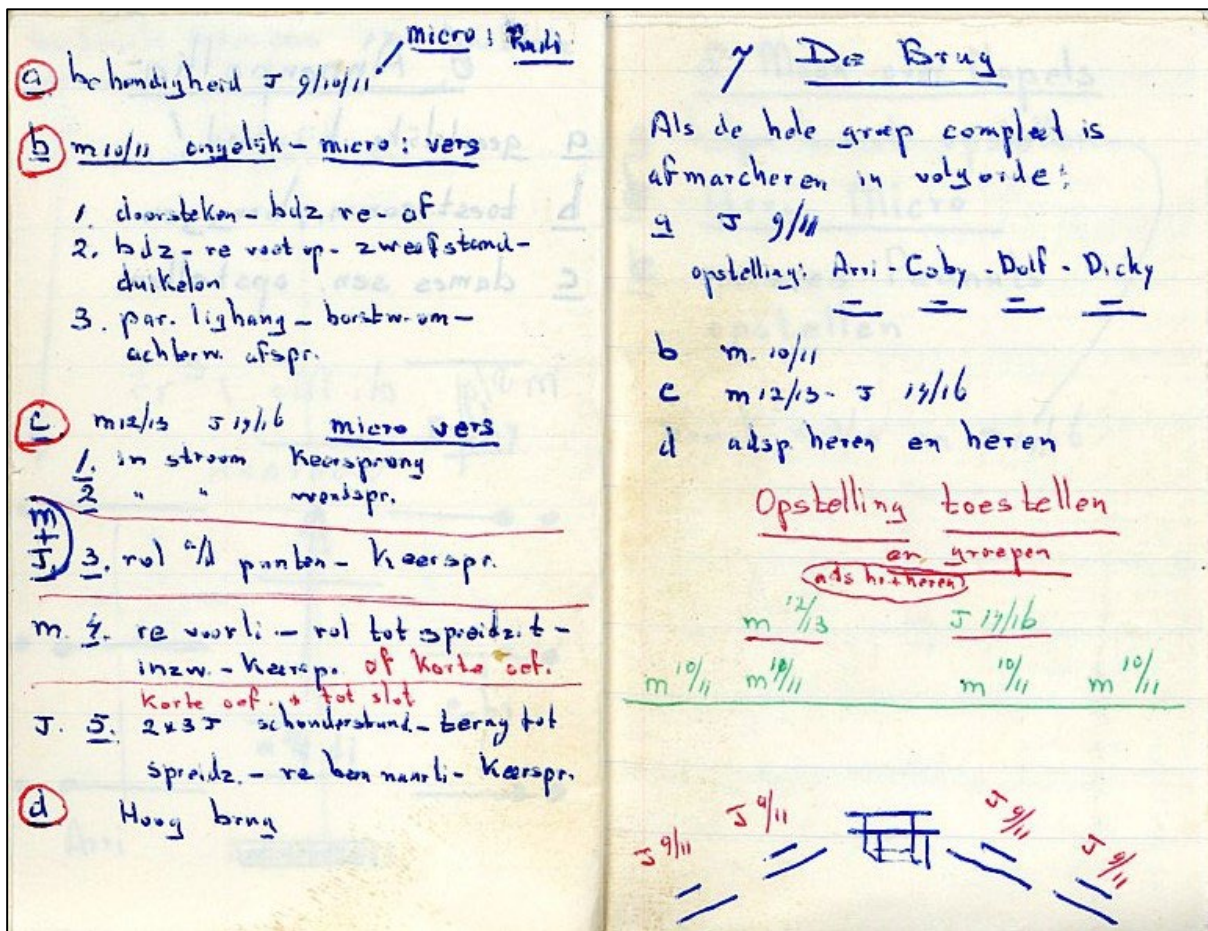 micro : Rudi
a behendigheid J 9/10/11
b m 10/11 ongelijk - micro : vers
1. doorsteken - bdz re af
2. bdz - re voet op - zweefstand -
duikelen
3. par. lighang - borstw. om -
achterw. afspr.
c m 12/13 J 14/16 micro vers
1. in stroom Keersprong
2 " " wendspr.
m + J. 3. rol a/d punten - Keerspr.
m. 4. re voor li - rol tot spreidzit -
inzw. - Keerspr. of Korte oef.
Korte oef. tot slot
J. 5. 2x3 J schouderstand - terug tot
spreidz. - re been naar li - Keerspr.
d Hoog brug
7 De Brug
Als de hele groep compleet is
afmarcheren in volgorde:
a J 9/11
opstelling: Arri - Coby - Dolf - Dicky
b m. 10/11
c m 12/13 - J 14/16
d adsp. heren en heren
Opstelling toestellen
en groepen
ads hr + heren
m 12/13 J 14/16
m 10/11 m 10/11 m 10/11 m 10/11
J 9/11 J 9/11 J 9/11 J 9/11